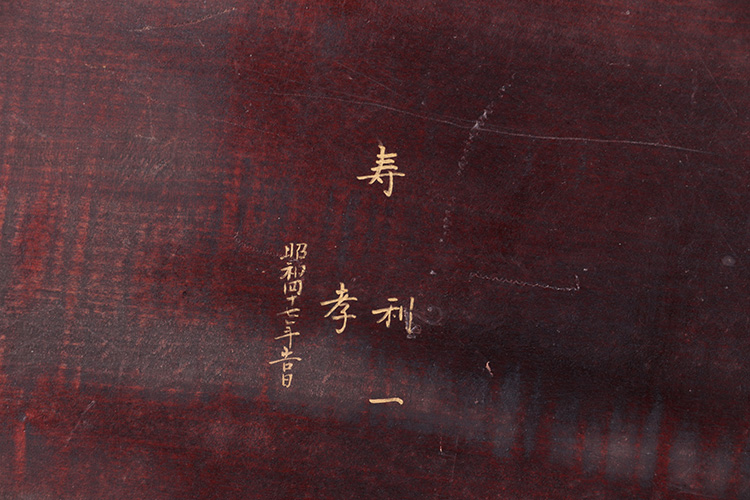 寿
利一
孝
昭和四十七年吉日